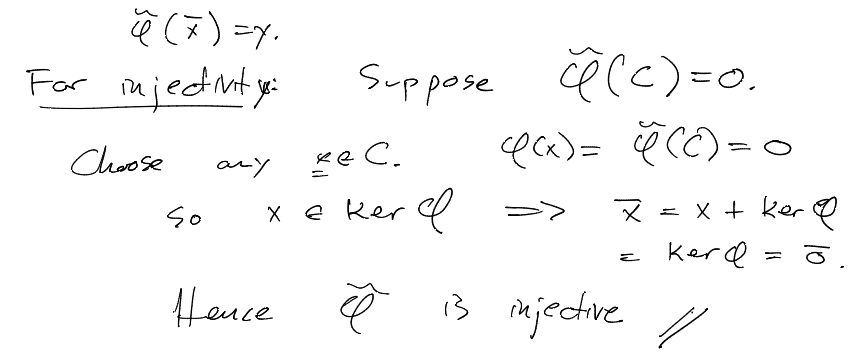 φ̃(x̄) = y.
For injectivity: Suppose φ̃(C) = 0.
Choose any x ∈ C. φ(x) = φ̃(C) = 0
so x ∈ ker φ => x̄ = x + ker φ
= ker φ = ō.
Hence φ̃ is injective //